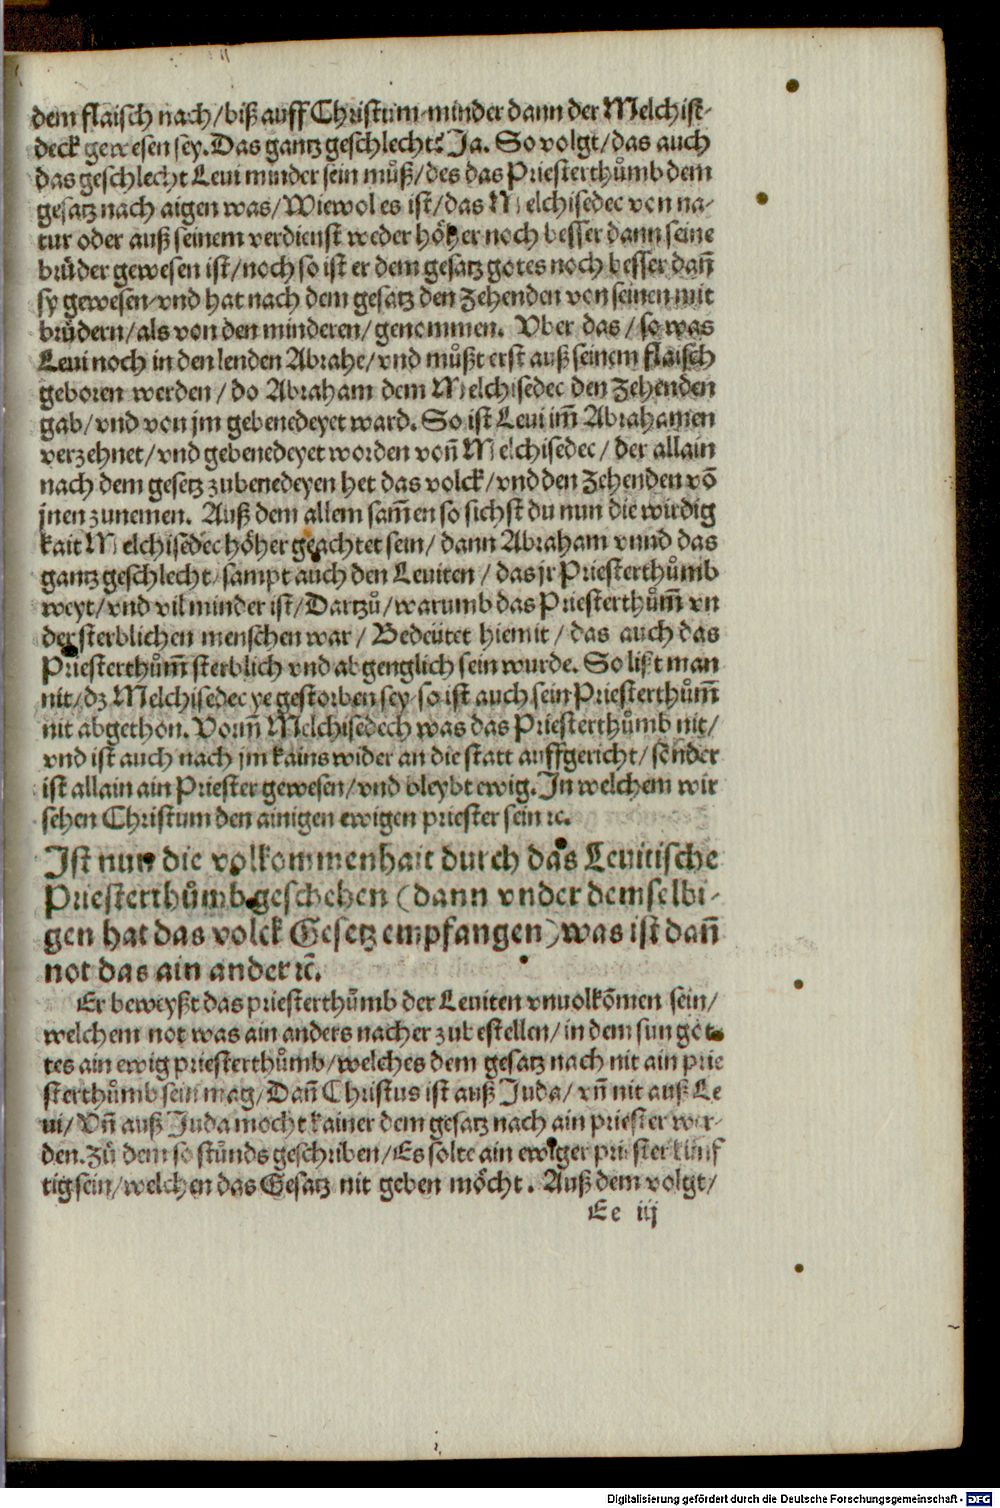 dem flaisch nach/ biß auff Christum minder dann der Melchise-
deck gewesen sey. Das gantz geschlecht? Ja. So volgt/ das auch
das geschlecht Leui minder sein můß/ des das Priesterthůmb dem
gesatz nach aigen was/ Wiewol es ist/ das Melchisedec von na-
tur oder auß seinem verdienst weder höher noch besser dann seine
brůder gewesen ist/ noch so ist er dem gesatz gotes noch besser dañ
sy gewesen/ vnd hat nach dem gesatz den Zehenden von seinen mit
brůdern/ als von den minderen/ genommen. Vber das/ so was
Leui noch in den lenden Abrahe/ vnd můßt erst auß seinem flaisch
geboren werden/ do Abraham dem Melchisedec den Zehenden
gab/ vnd von jm gebenedeyet ward. So ist Leui im̃ Abrahamen
verzehnet/ vnd gebenedeyet worden von̄ Melchisedec/ der allain
nach dem gesetz zubenedeyen het das volck/ vnd den Zehenden võ
jnen zunemen. Auß dem allem sam̃en so sichst du nun die wirdig
kait Melchisedec höher geachtet sein/ dann Abraham vnnd das
gantz geschlecht/ sampt auch den Leuiten/ das jr Priesterthůmb
weyt/ vnd vil minder ist/ Dartzů/ warumb das Priesterthům̃ vn
der sterblichen menschen war/ Bedeütet hiemit/ das auch das
Priesterthům̃ sterblich vnd abgenglich sein wurde. So lißt man
nit/ dz Melchisedec ye gestorben sey/ so ist auch sein Priesterthům̃
nit abgethon. Vorm̃ Melchisedech was das Priesterthůmb nit/
vnd ist auch nach jm kains wider an die statt auffgericht/ sonder
ist allain ain Priester gewesen/ vnd bleybt ewig. In welchem wir
sehen Christum den ainigen ewigen priester sein ꝛc.
Ist nun die volkommenhait durch das Leuitische
Priesterthůmb geschehen (dann vnder demselbi-
gen hat das volck Gesetz empfangen) was ist dañ
not das ain ander ꝛc̃.
Er beweyßt das priesterthůmb der Leuiten vnuolkõmen sein/
welchem not was ain anders nacher zubestellen/ in dem sun got
tes ain ewig priesterthůmb/ welches dem gesatz nach nit ain prie
sterthůmb sein mag/ Dañ Christus ist auß Juda/ vñ nit auß Le
ui/ Vñ auß Juda mocht kainer dem gesatz nach ain priester wer-
den. Zů dem so stůnds geschriben/ Es solte ain ewiger priester künf
tig sein/ welchen das Gesatz nit geben möcht. Auß dem volgt/
Ee iij
Digitalisierung gefördert durch die Deutsche Forschungsgemeinschaft - DFG